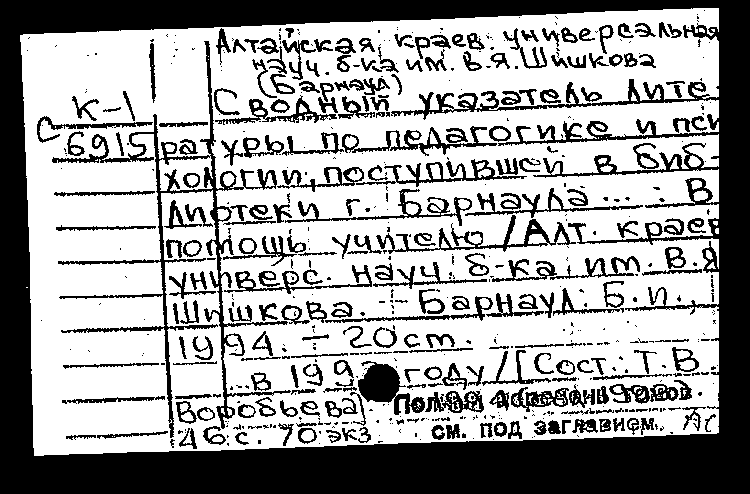 Алтайская краев. универсальная
науч. б-ка им. В.Я. Шишкова
(Барнаул)
К-1
С
6915
Сводный указатель лите-
ратуры по педагогике и пси
хологии, поступившей в биб-
лиотеки г. Барнаула ... : В
помощь учителю / Алт. краев
универс. науч. б-ка им. В.Я
Шишкова. - Барнаул: Б.и.,
1994. - 20 см.
... в 199 году / [Сост.: Т.В.
Воробьева]
46 с. 70 экз
см. под заглавием.